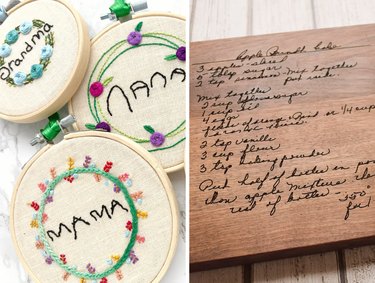 Grandma
NANA
MAMA
Apple Bundt Cake
3 apples - sliced
5 tbsp sugar
2 tsp cinnamon Mix together
put aside.
Mix together
2 cup sugar
1 cup oil
4 eggs
or 1/4 cup
2 tsp vanilla
3 cup flour
3 tsp baking powder
Put half of batter in pan
apple mixture
rest of batter - 350°
for 1